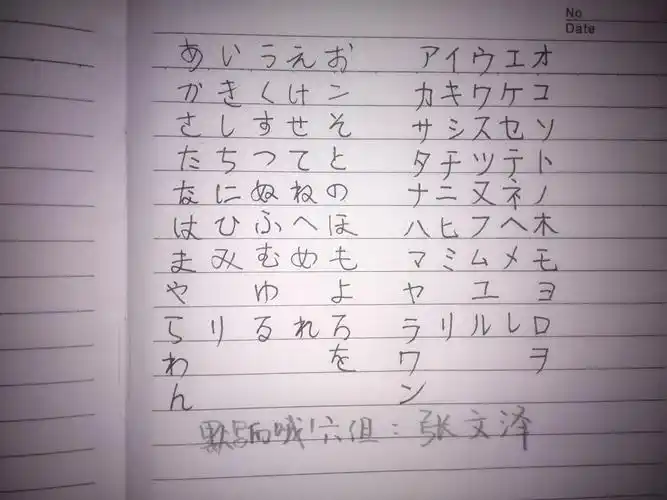 No
Date
あいうえお アイウエオ
かきくけこ カキワケコ
さしすせそ サシスセソ
たちつてと タチツテト
なにぬねの ナニヌネノ
はひふへほ ハヒフヘホ
まみむめも マミムメモ
やゆよ ヤユヨ
らりるれろ ラリルレロ
わを ワヲ
ん ン
默写哦!六组:张文泽